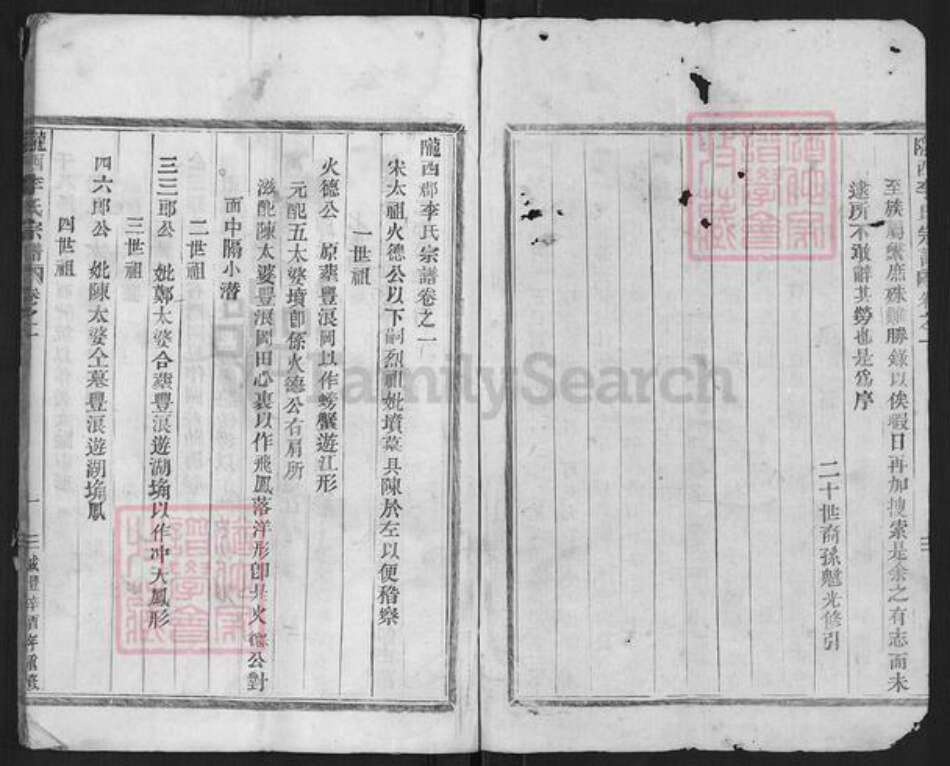 至族屬繁庶殊難勝錄以俟暇日再加搜索是余之有志而未
逮所不敢辭其勞也是為序
二十世裔孫魁光修引
隴西郡李氏宗譜卷之一
宋太祖火德公以下嗣烈祖妣墳墓具陳於左以便稽察
一世祖
火德公 原葬豐浪岡以作螃蟹遊江形
元配五太婆墳即係火德公右肩所
滋配陳太婆豐浪岡田心裏以作飛鳳落洋形即是火德公對
面中隔小潜
二世祖
三三郎公 妣鄭太婆合葬豐浪遊湖墘以作冲天鳳形
三世祖
四六郎公 妣陳太婆仝墓豐浪遊湖墘鳳
四世祖
隴西李氏宗譜
一
咸豐辛酉年重鐫
FamilySearch